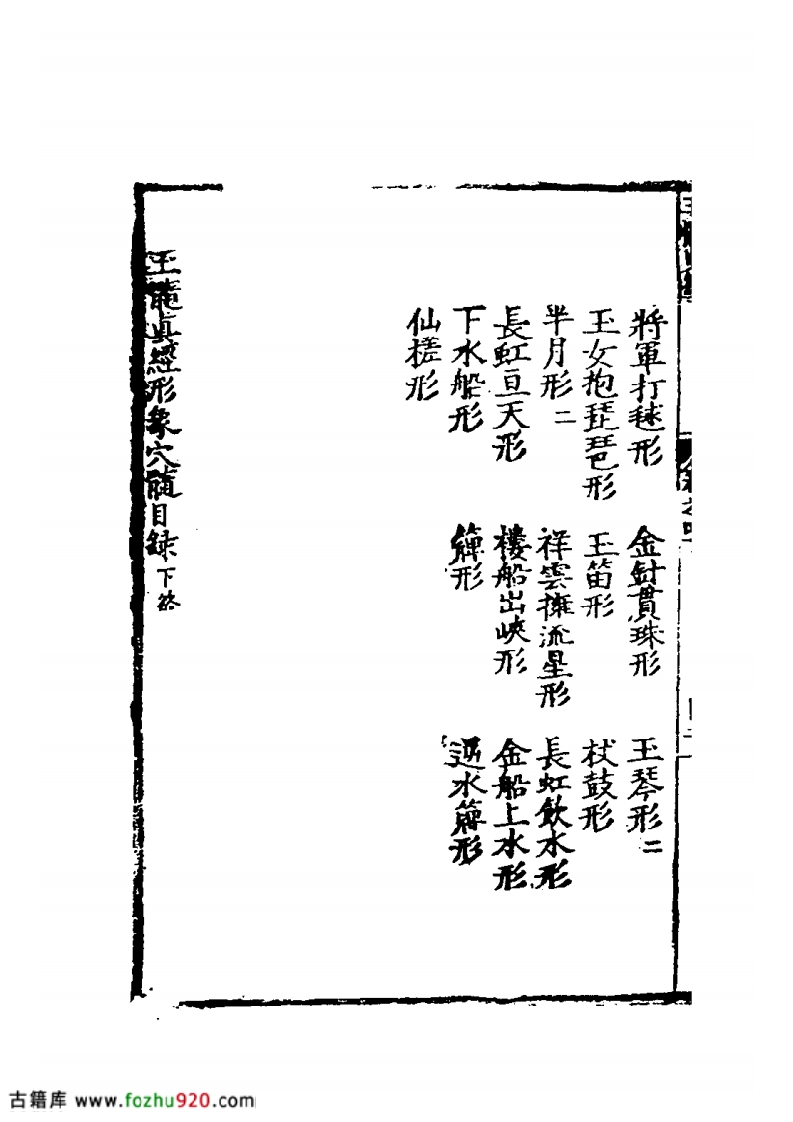 將軍打毬形 金針貫珠形 玉琴形二
玉女抱琵琶形 玉笛形 杖鼓形
半月形二 祥雲擁流星形 長虹飲水形
長虹亘天形 樓船出峽形 金船上水形
下水船形 簰形 逆水簰形
仙槎形
玉髓真經形象穴髓目錄下終
古籍库 www.fozhu920.com